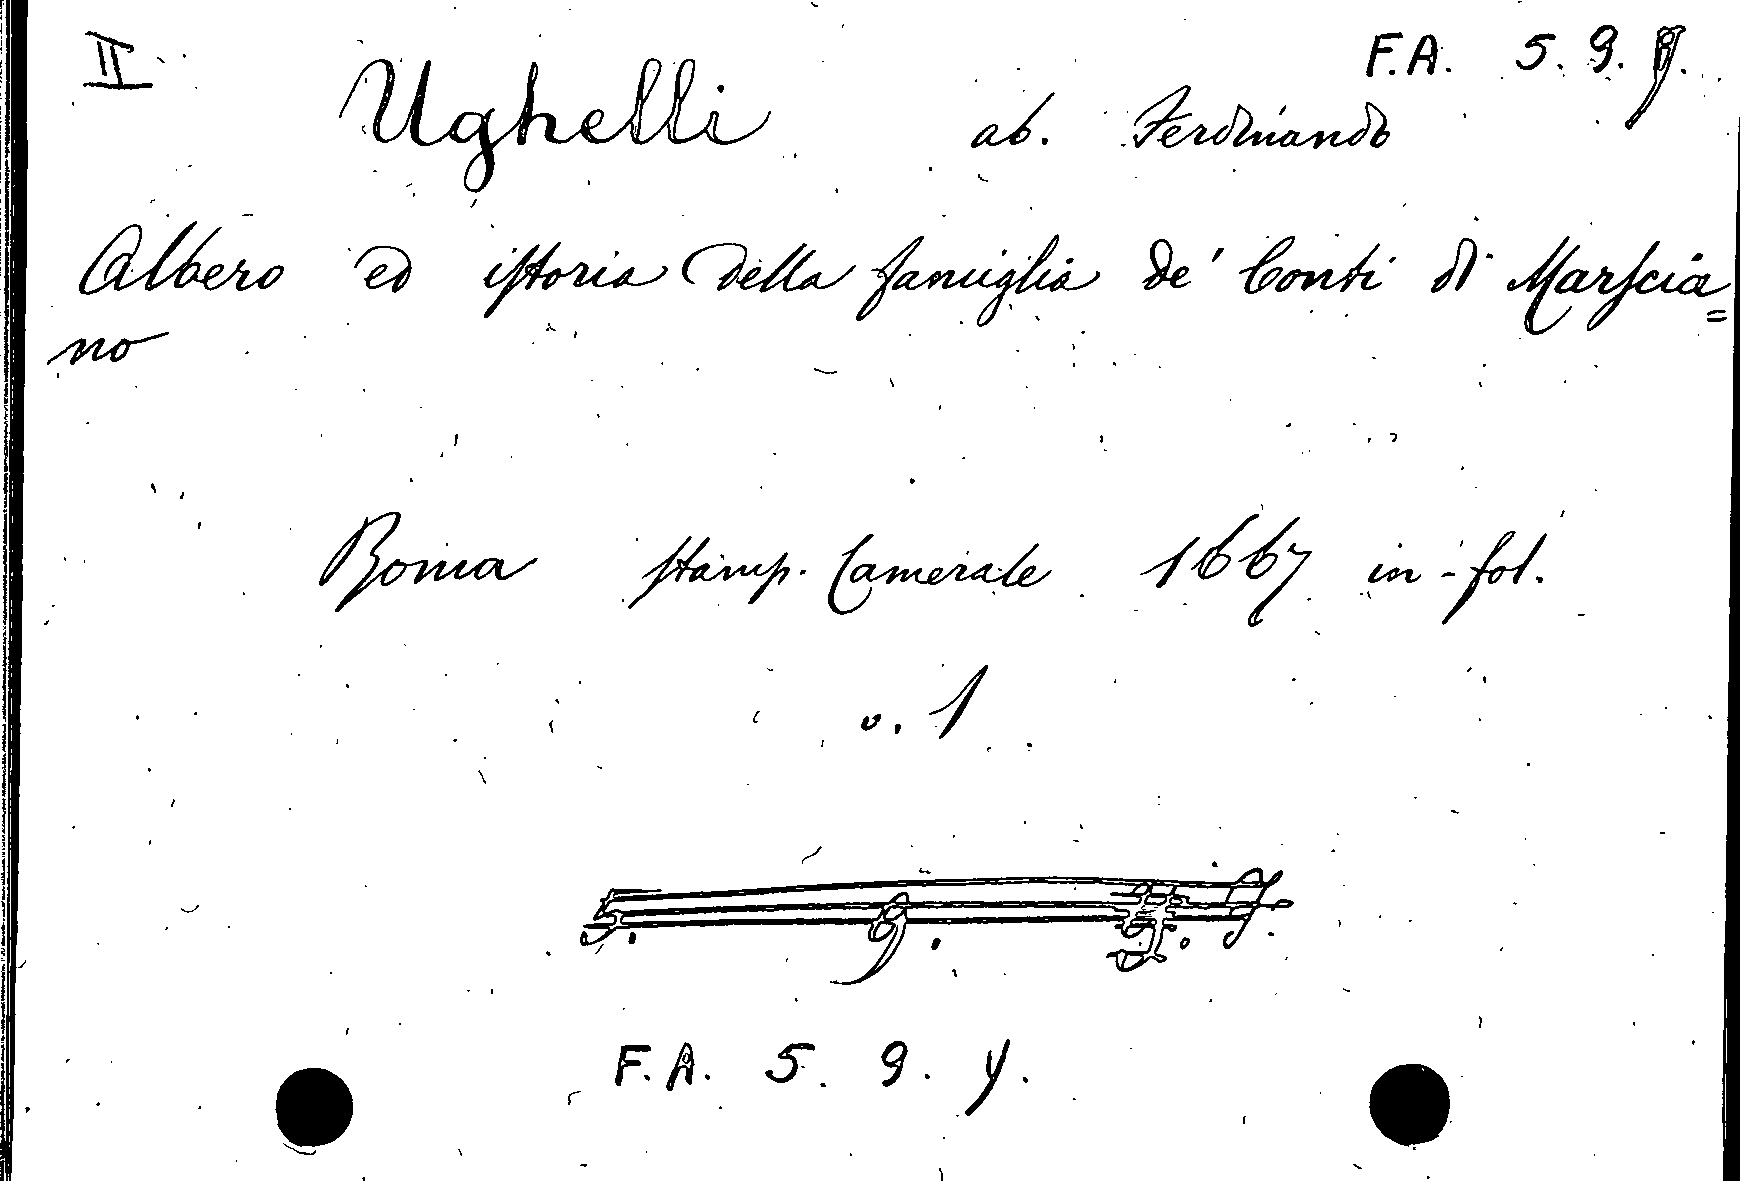 II
F.A. 5. 9. y.
Ughelli ab. Ferdinando
Albero ed istoria della famiglia de' Conti di Marscia=
no
Roma stamp. Camerale 1667 in-fol.
v. 1
F.A. 5. 9. y.